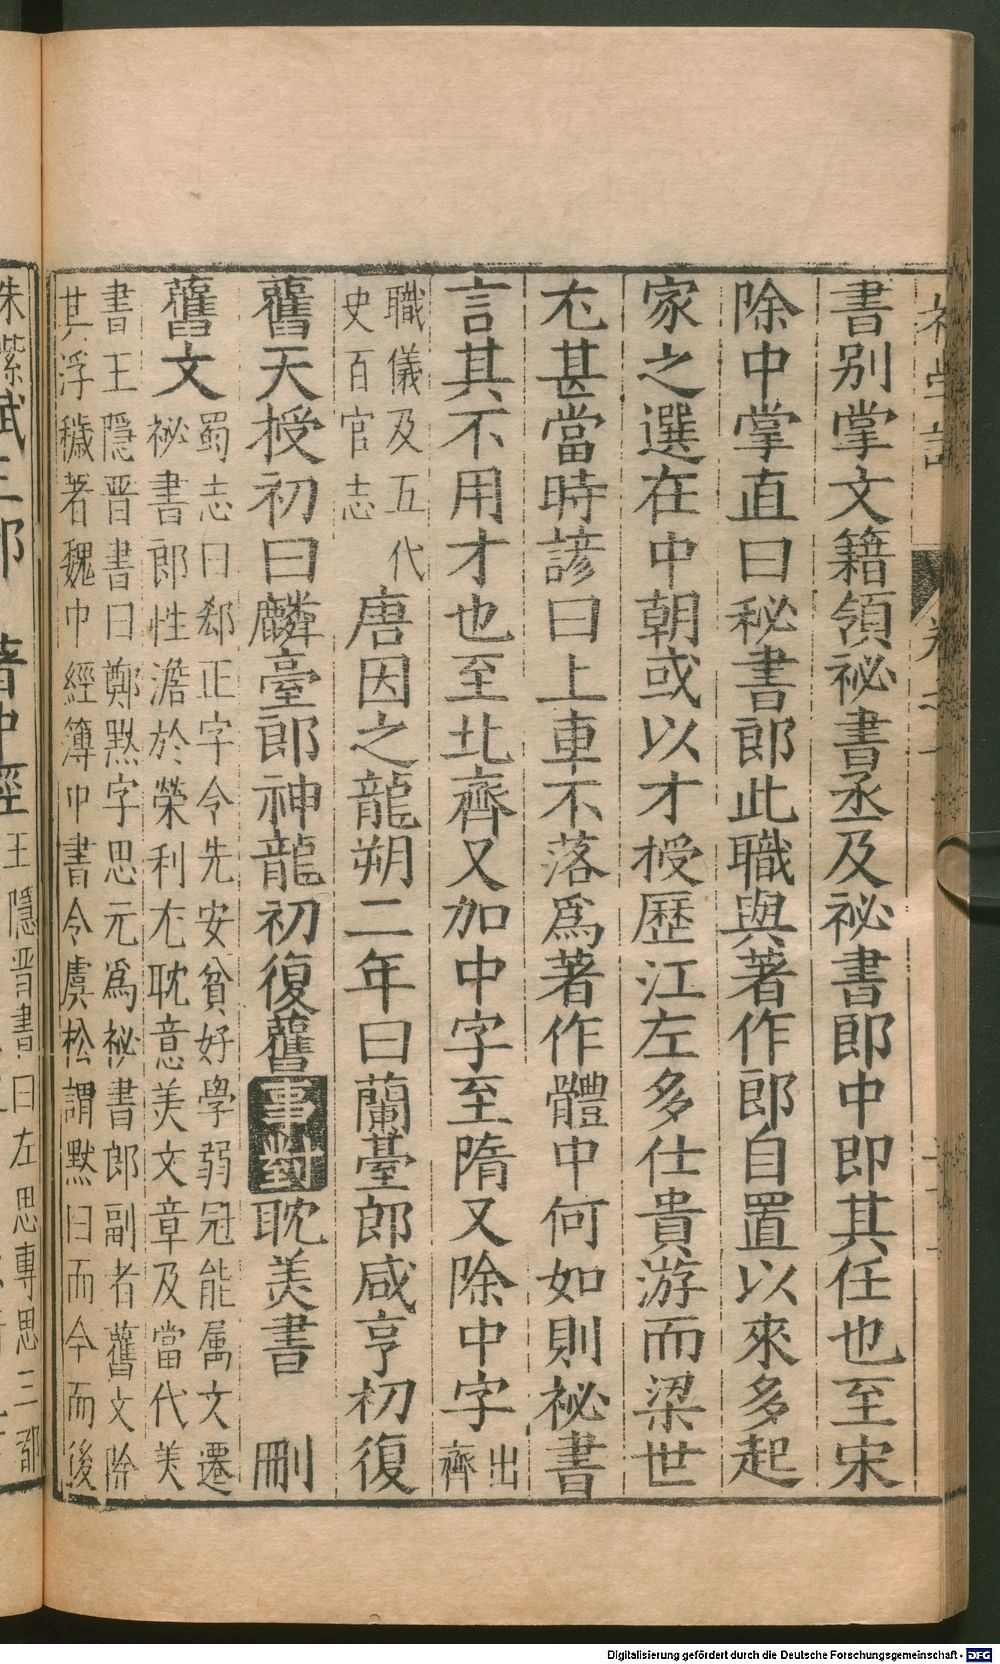 書别掌文籍領祕書丞及祕書郎中即其任也至宋
除中掌直曰秘書郎此職與著作郎自置以來多起
家之選在中朝或以才授歷江左多仕貴游而梁世
尤甚當時諺曰上車不落爲著作體中何如則祕書
言其不用才也至北齊又加中字至隋又除中字出齊
職儀及五代史百官志唐因之龍朔二年曰蘭臺郎咸亨初復
舊天授初曰麟臺郎神龍初復舊事對耽美書 刪
舊文蜀志曰郄正字令先安貧好學弱冠能属文遷
祕書郎性澹於榮利尤耽意美文章及當代美
書王隱晋書曰鄭黙字思元爲祕書郎副者舊文除
其浮穢著魏中經簿中書令虞松謂默曰而今而後
王隱晋書曰左思專思三都
Digitalisierung gefördert durch die Deutsche Forschungsgemeinschaft - DFG